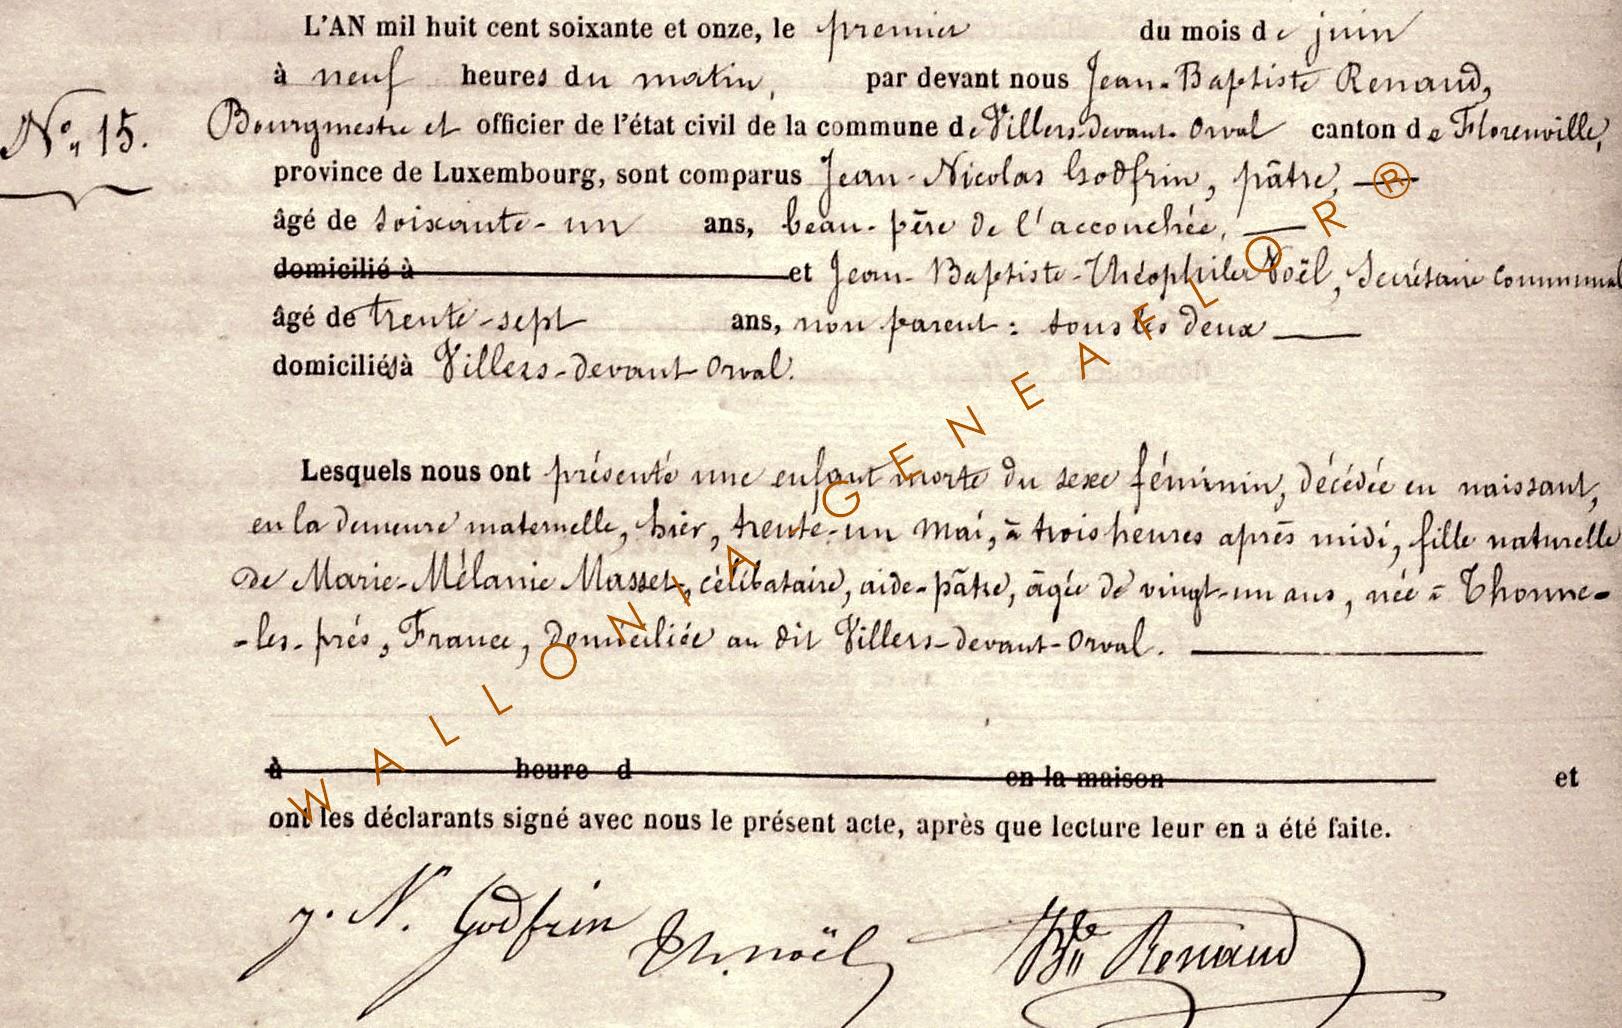 L'AN mil huit cent soixante et onze, le premier du mois de juin
à neuf heures du matin, par devant nous Jean-Baptiste Renaud,
N° 15.
Bourgmestre et officier de l'état civil de la commune de Villers-devant-Orval canton de Florenville,
province de Luxembourg, sont comparus Jean-Nicolas Godfrin, pâtre,
âgé de soixante-un ans, beau-père de l'accouchée,
domicilié à et Jean-Baptiste-Théophile Noël, Secrétaire communal
âgé de trente-sept ans, non parent : tous les deux
domiciliés à Villers-devant-Orval.
Lesquels nous ont présenté une enfant morte du sexe féminin, décédée en naissant,
en la demeure maternelle, hier, trente-un mai, à trois heures après midi, fille naturelle
de Marie-Mélanie Masset, célibataire, aide-pâtre, âgée de vingt-un ans, née à Thonne-
-les-prés, France, domiciliée au dit Villers-devant-Orval.
à heure d en la maison et
ont les déclarants signé avec nous le présent acte, après que lecture leur en a été faite.
J. N. Godfrin Th. Noël Bte Renaud
WALLONIA GENEAFLOR ®